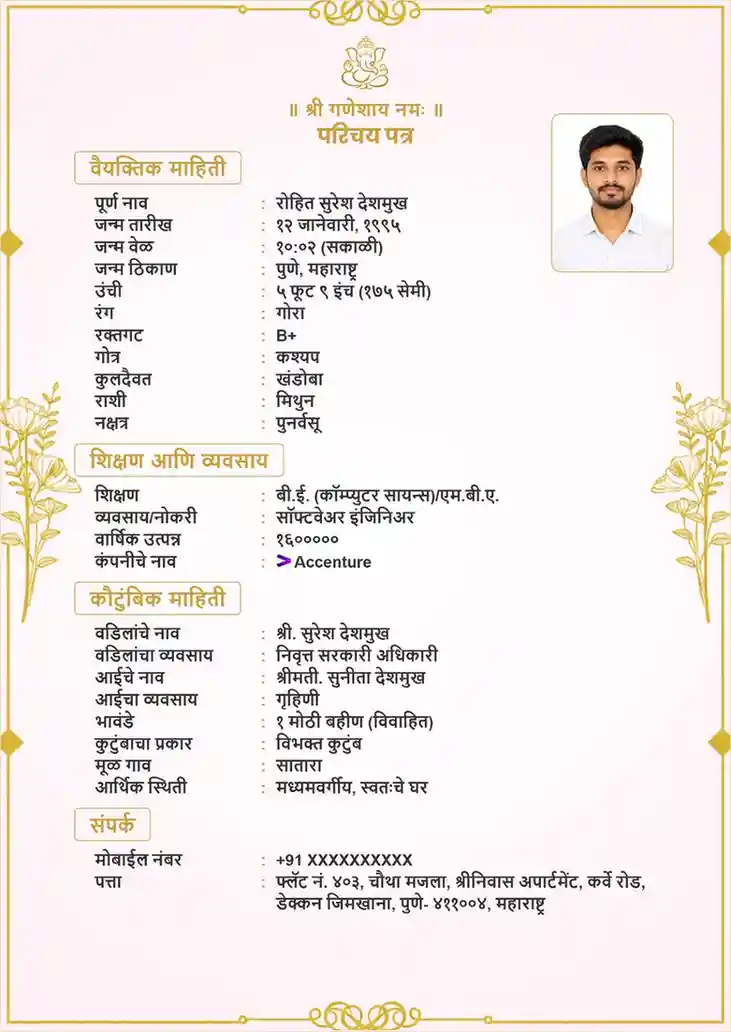 ॥ श्री गणेशाय नमः ॥
परिचय पत्र
वैयक्तिक माहिती
पूर्ण नाव : रोहित सुरेश देशमुख
जन्म तारीख : १२ जानेवारी, १९९५
जन्म वेळ : १०:०२ (सकाळी)
जन्म ठिकाण : पुणे, महाराष्ट्र
उंची : ५ फूट ९ इंच (१७५ सेमी)
रंग : गोरा
रक्तगट : B+
गोत्र : कश्यप
कुलदैवत : खंडोबा
राशी : मिथुन
नक्षत्र : पुनर्वसू
शिक्षण आणि व्यवसाय
शिक्षण : बी.ई. (कॉम्प्युटर सायन्स)/एम.बी.ए.
व्यवसाय/नोकरी : सॉफ्टवेअर इंजिनिअर
वार्षिक उत्पन्न : १६०००००
कंपनीचे नाव : > Accenture
कौटुंबिक माहिती
वडिलांचे नाव : श्री. सुरेश देशमुख
वडिलांचा व्यवसाय : निवृत्त सरकारी अधिकारी
आईचे नाव : श्रीमती. सुनीता देशमुख
आईचा व्यवसाय : गृहिणी
भावंडे : १ मोठी बहीण (विवाहित)
कुटुंबाचा प्रकार : विभक्त कुटुंब
मूळ गाव : सातारा
आर्थिक स्थिती : मध्यमवर्गीय, स्वतःचे घर
संपर्क
मोबाईल नंबर : +91 XXXXXXXXXX
पत्ता : फ्लॅट नं. ४०३, चौथा मजला, श्रीनिवास अपार्टमेंट, कर्वे रोड,
डेक्कन जिमखाना, पुणे- ४११००४, महाराष्ट्र